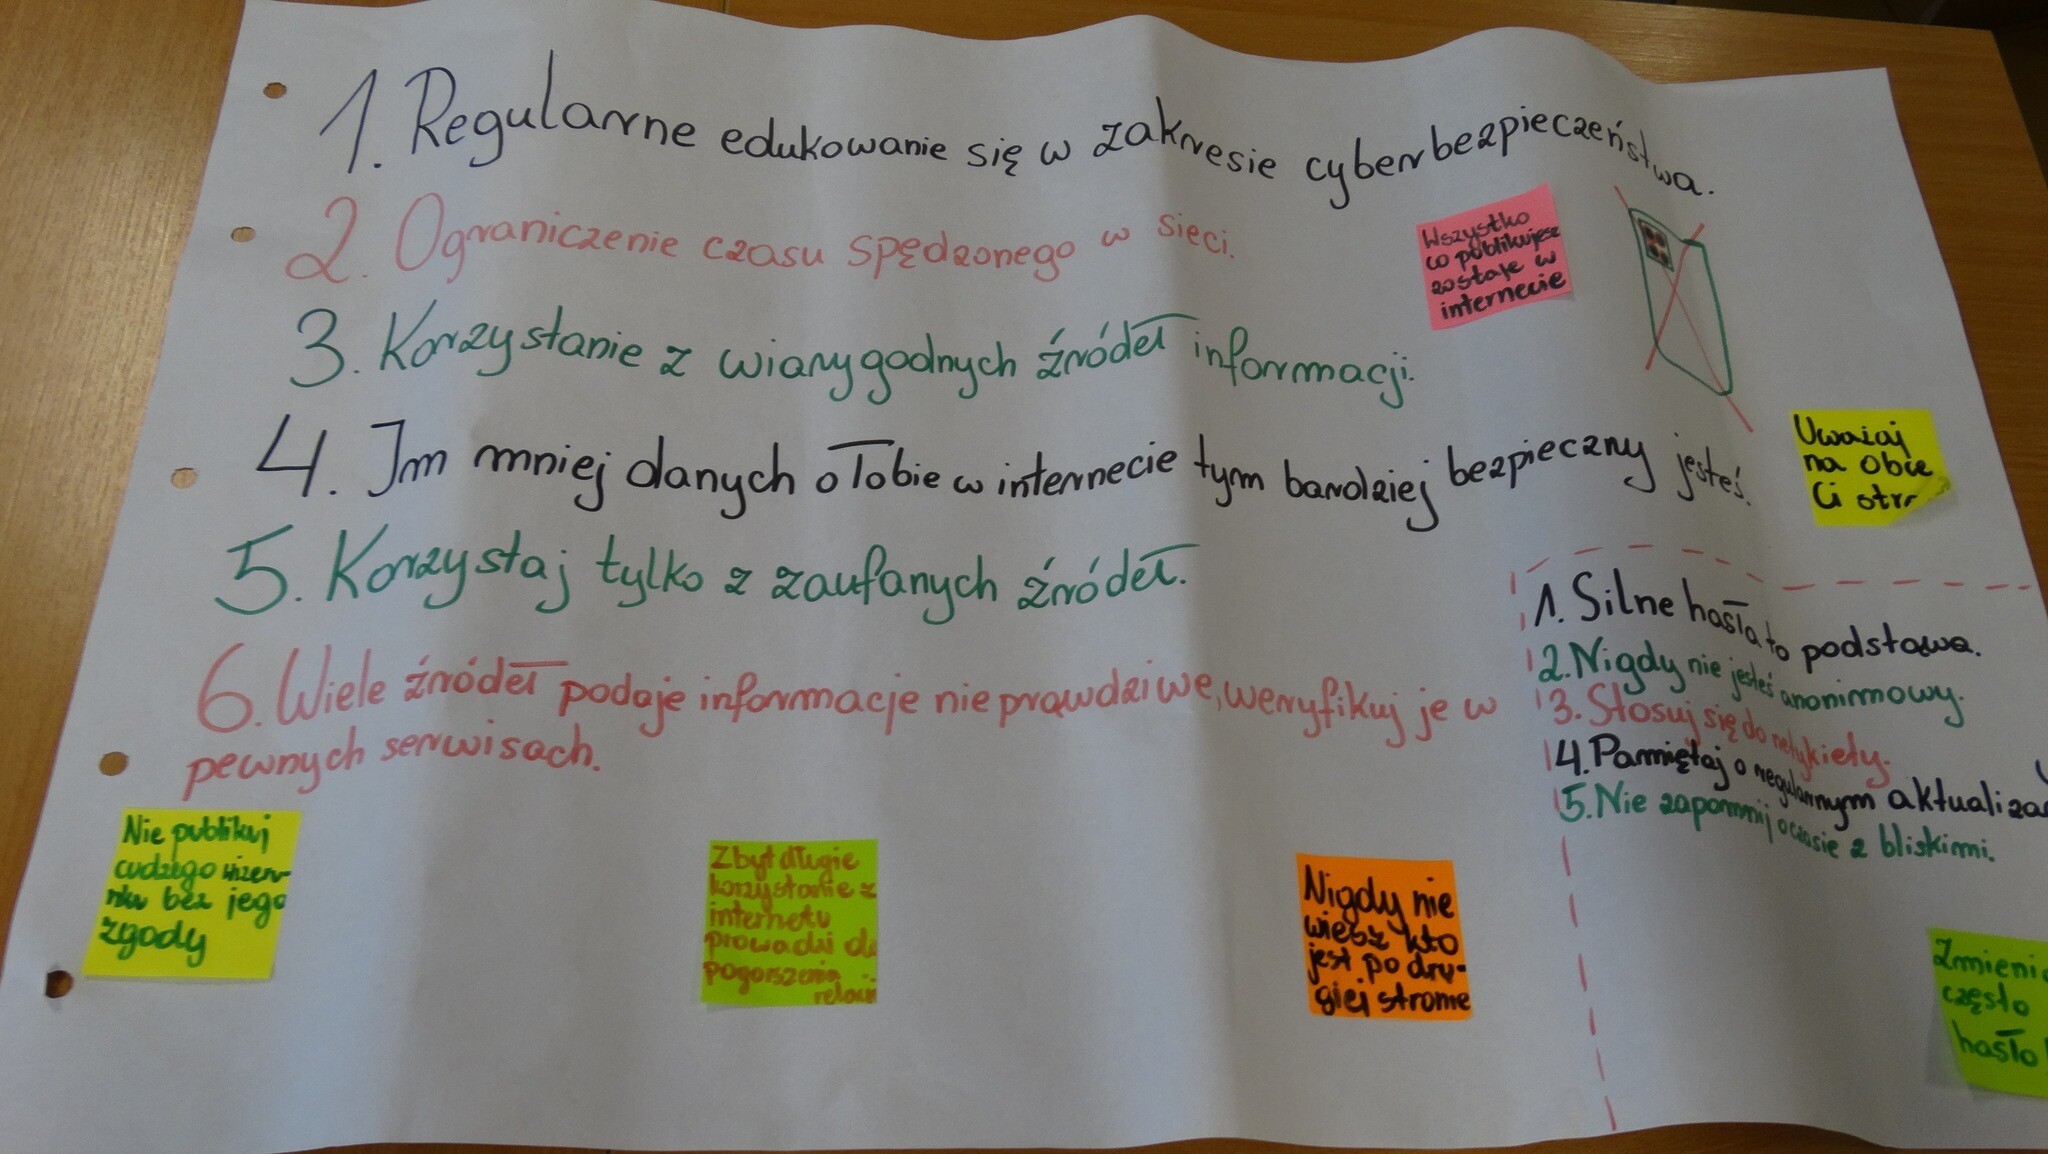 1. Regularne edukowanie się w zakresie cyberbezpieczeństwa.
2. Ograniczenie czasu spędzonego w sieci.
3. Korzystanie z wiarygodnych źródeł informacji.
4. Im mniej danych o Tobie w internecie tym bardziej bezpieczny jesteś.
5. Korzystaj tylko z zaufanych źródeł.
6. Wiele źródeł podaje informacje nie prawdziwe, weryfikuj je w
pewnych serwisach.
Wszystko
co publikujesz
zostaje w
internecie
Uważaj
na obce
Ci stro
1. Silne hasła to podstawa.
2. Nigdy nie jesteś anonimowy.
3. Stosuj się do netykiety.
4. Pamiętaj o regularnym aktualiza
5. Nie zapomnij o czasie z bliskimi.
Nie publikuj
cudzego wizer-
nku bez jego
zgody
Zbyt długie
korzystanie z
internetu
prowadzi do
pogorszenia
relacji
Nigdy nie
wiesz kto
jest po dru-
giej stronie
Zmieni
często
hasło